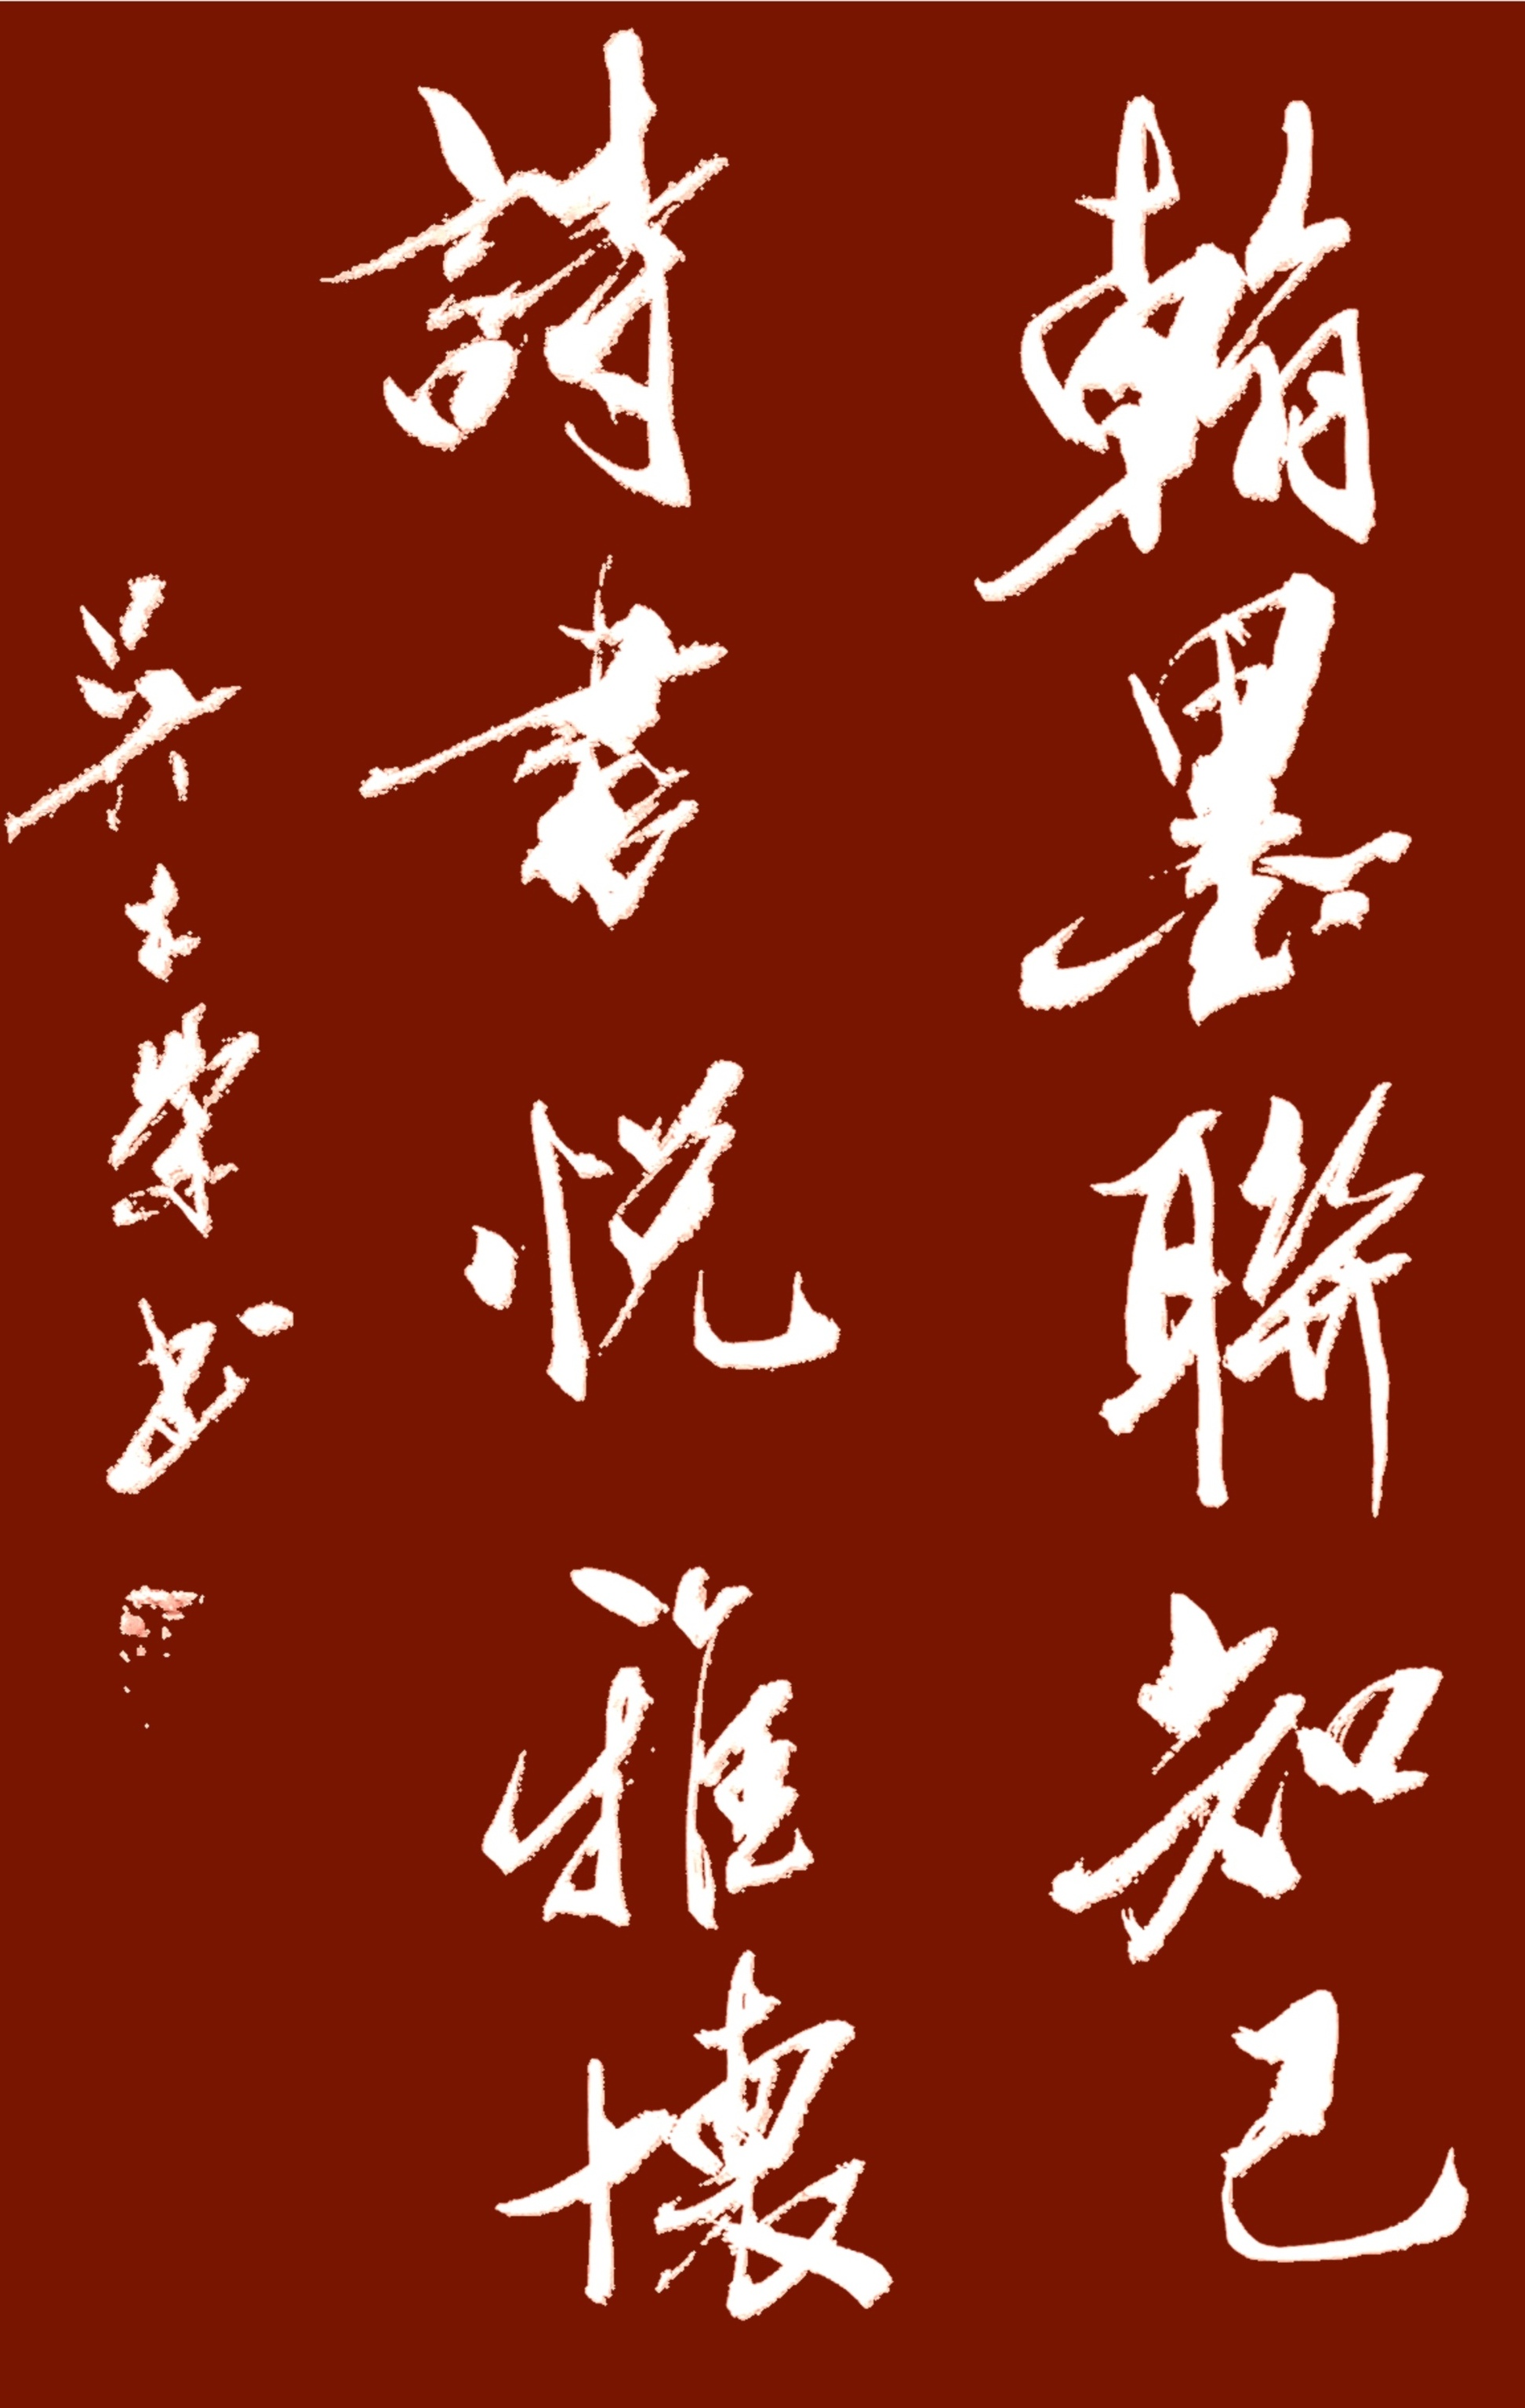 翰墨聯知己
詩書悅雅懷
书